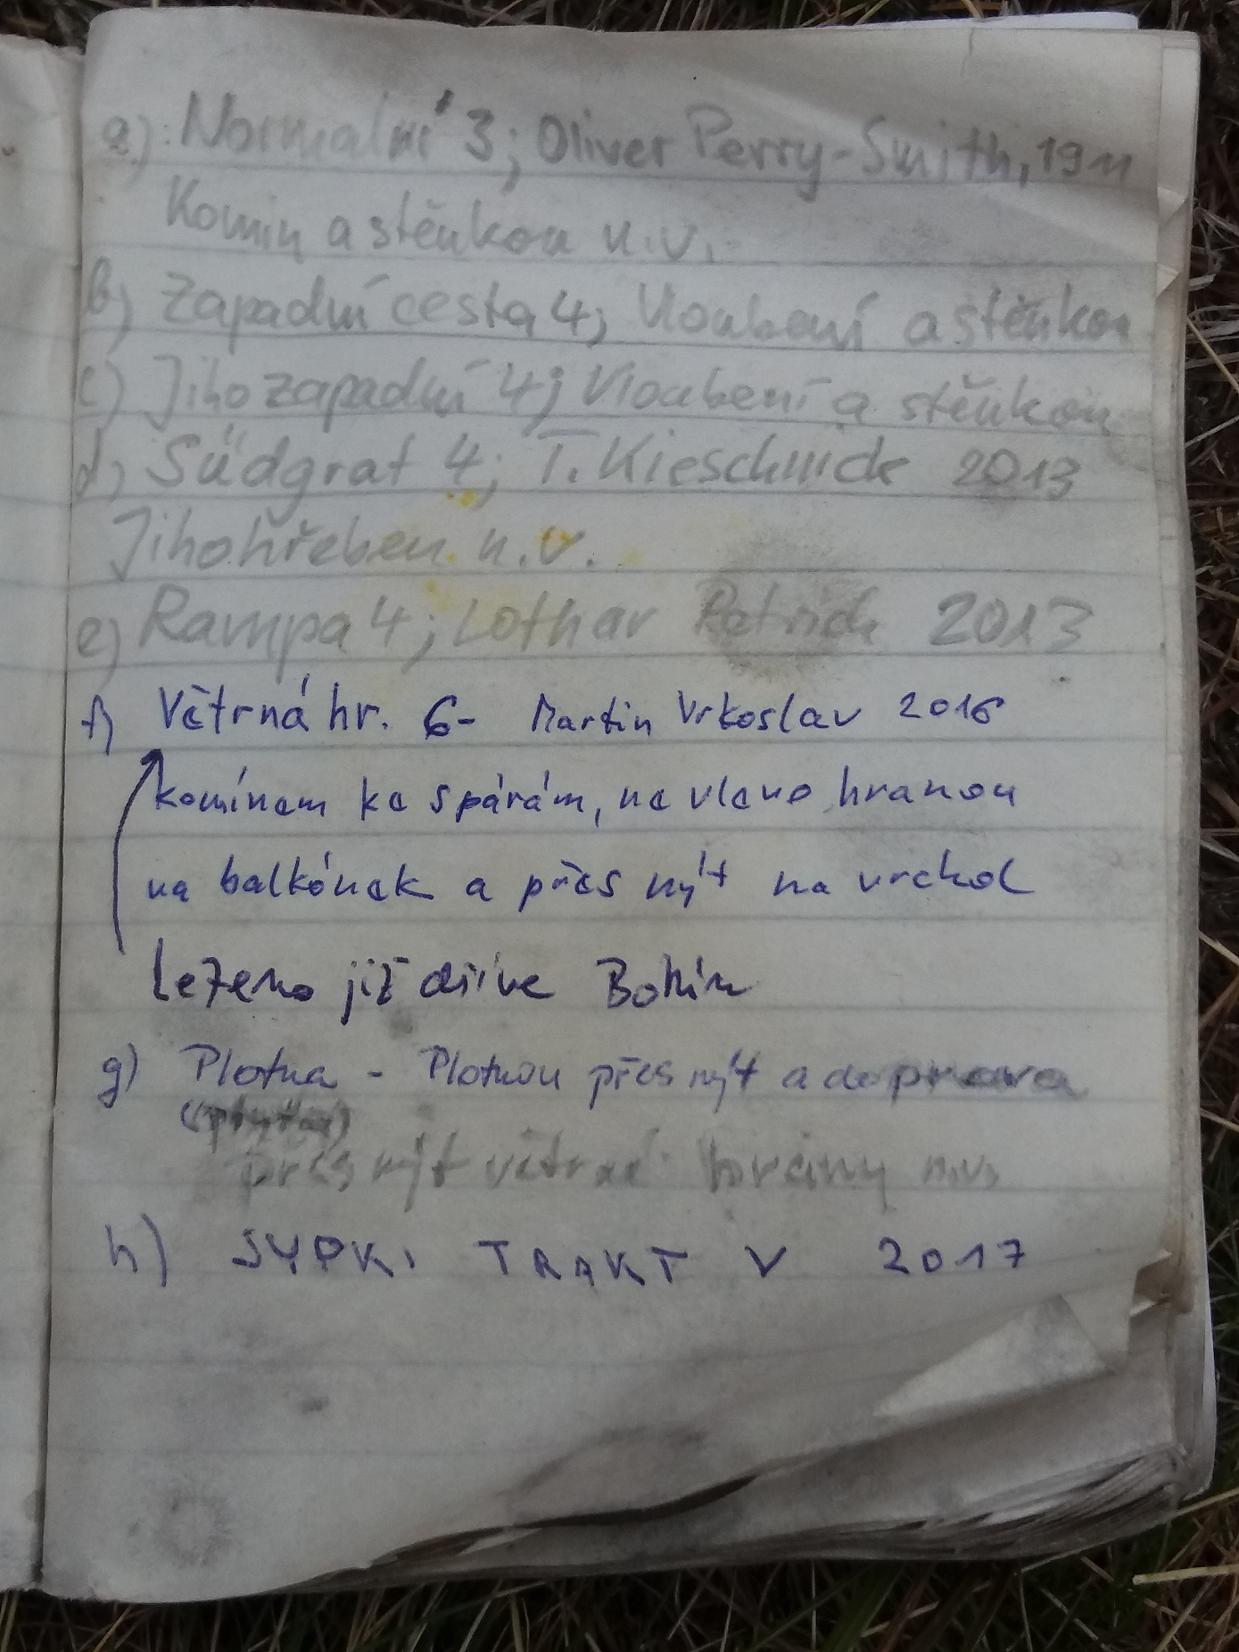 a) Normalní 3; Oliver Perry-Smith, 1911
Komín a stěnkou n.v.
b) Západní cesta 4; Vloubení a stěnkou
c) Jihozapadní 4; Vloubení a stěnkou
d) Südgrat 4; T. Kieschnick 2013
Jihohřeben n.v.
e) Rampa 4; Lothar Patrick 2013
f) Větrná hr. 6- Martin Vrkoslav 2016
komínem ke spárám, na vlevo hranou
na balkónek a přes nýt na vrchol
Lezeno již dříve
g) Plotna - Plotnou přes nýt a doprava
přes nýt větrné n.v.
h) SYPKI TRAKT V 2017